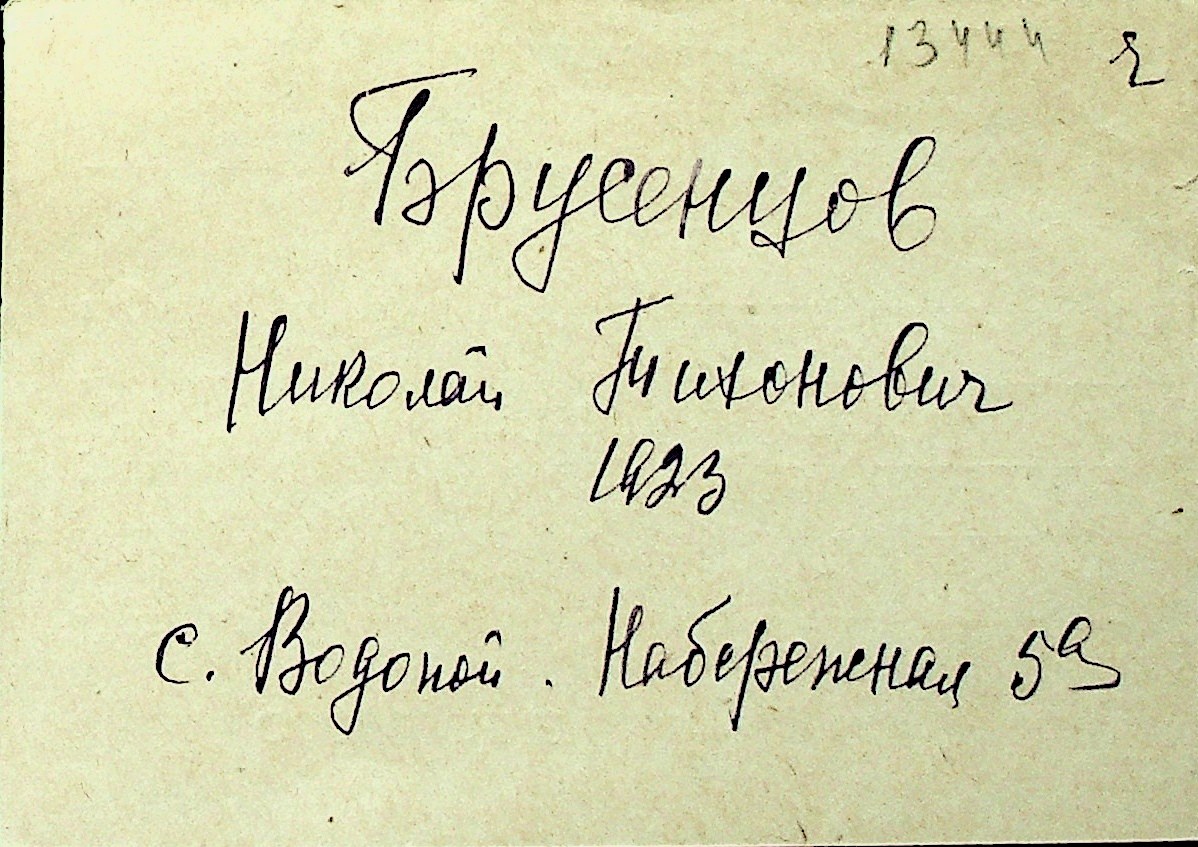 13444 г
Брусенцов
Николай Тихонович
1923
с. Водопой. Набережная 5а